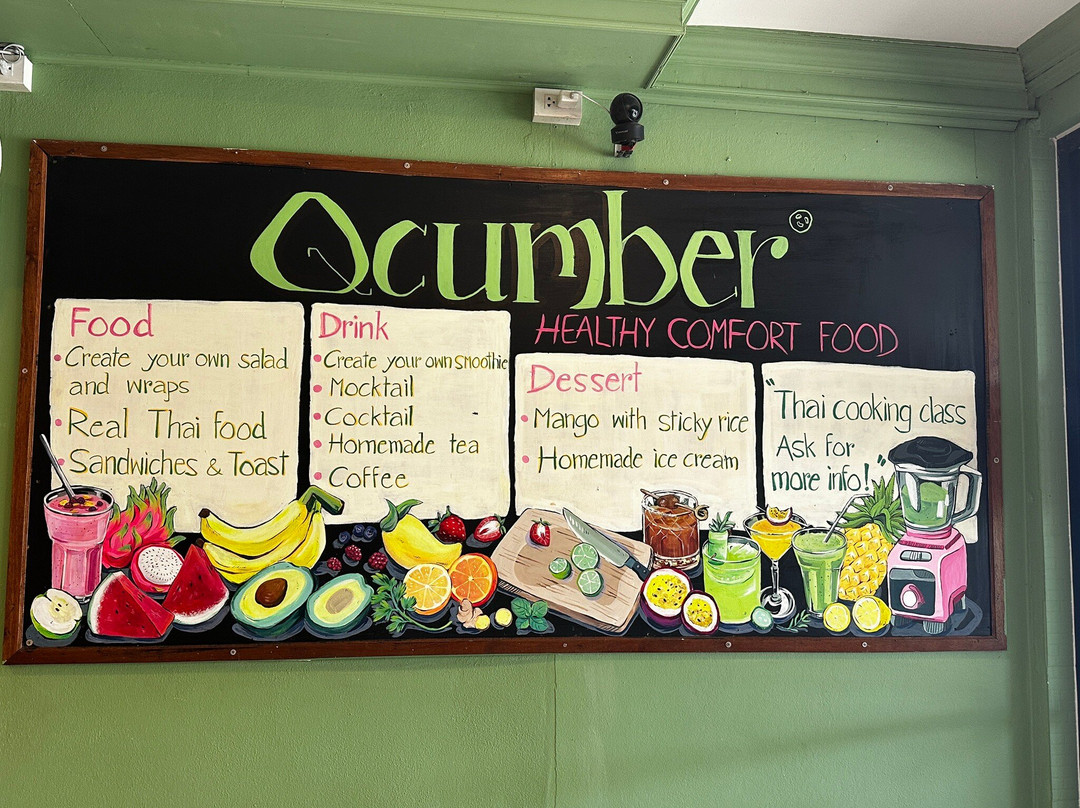 Qcumber
HEALTHY COMFORT FOOD
Food
• Create your own salad
and wraps
• Real Thai food
• Sandwiches & Toast
Drink
• Create your own smoothie
• Mocktail
• Cocktail
• Homemade tea
• Coffee
Dessert
• Mango with sticky rice
• Homemade ice cream
"Thai cooking class
Ask for
more info!"